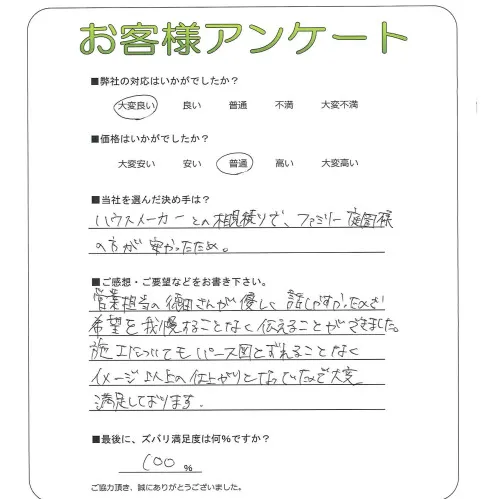 お客様アンケート
■弊社の対応はいかがでしたか？
大変良い 良い 普通 不満 大変不満
■価格はいかがでしたか？
大変安い 安い 普通 高い 大変高い
■当社を選んだ決め手は？
ハウスメーカーとの相見積りで、ファミリー庭園様
の方が安かったため。
■ご感想・ご要望などをお書き下さい。
営業担当の徳田さんが優しく話しやすかったので
希望を我慢することなく伝えることができました。
施工についてもパース図とずれることなく
イメージ以上の仕上がりとなっていたので大変
満足しております.
■最後に、ズバリ満足度は何%ですか？
100 %
ご協力頂き、誠にありがとうございました。